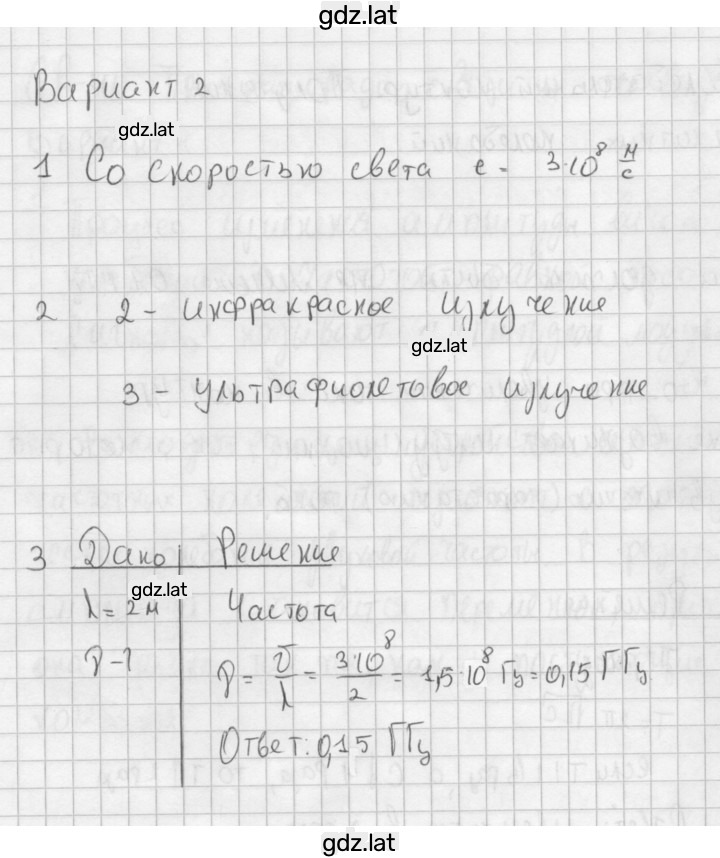 gdz.lat
Вариант 2
gdz.lat
1 Со скоростью света c = 3·10⁸ м/с
2 2 - инфракрасное излучение
gdz.lat
3 - ультрафиолетовое излучение
3 Дано Решение
gdz.lat
λ = 2 м Частота
ν - ? ν = υ/λ = 3·10⁸/2 = 1,5·10⁸ Гц = 0,15 ГГц
Ответ: 0,15 ГГц
gdz.lat